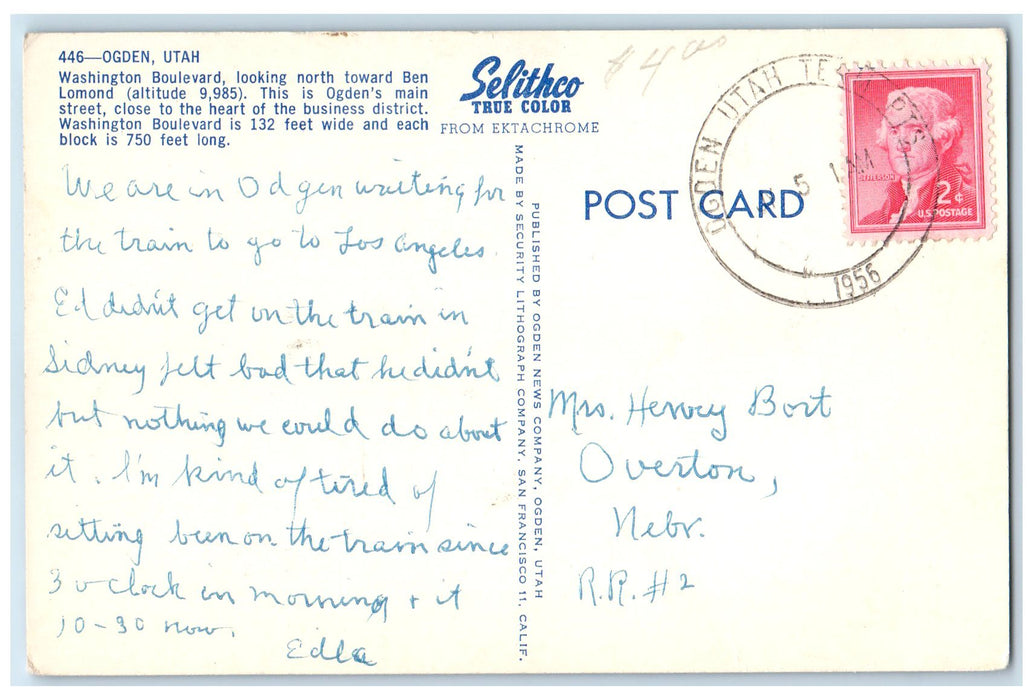 446—OGDEN, UTAH
Washington Boulevard, looking north toward Ben
Lomond (altitude 9,985). This is Ogden's main
street, close to the heart of the business district.
Washington Boulevard is 132 feet wide and each
block is 750 feet long.
Selithco
TRUE COLOR
FROM EKTACHROME
$4
We are in Odgen waitting for
the train to go to Los Angeles.
Ed didn't get on the train in
Sidney felt bad that he didn't
but nothing we could do about
it. I'm kind of tired of
sitting been on the train since
3 o clock in morning + it
10-30 now.
Edla
MADE BY SECURITY LITHOGRAPH COMPANY, SAN FRANCISCO 11, CALIF.
PUBLISHED BY OGDEN NEWS COMPANY, OGDEN, UTAH
POST CARD
OGDEN UTAH TERM
5
1956
JEFFERSON
2¢
U.S. POSTAGE
Mrs. Hervey Bort
Overton,
Nebr.
R.R. #2